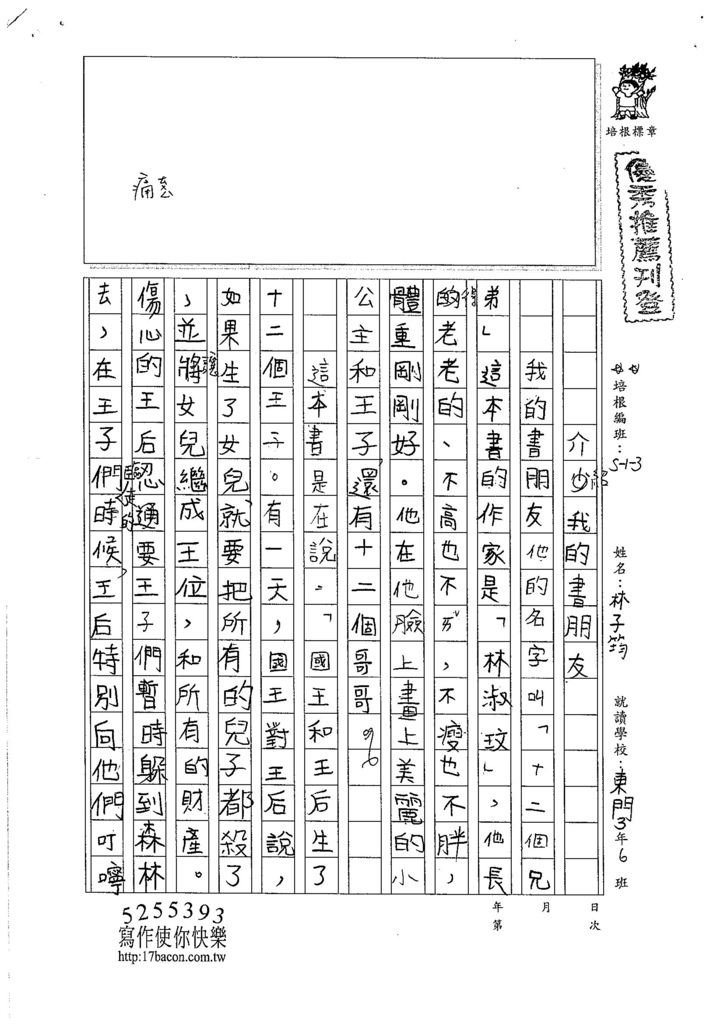 培根標章
優秀推薦刊登
培根編班：S-1-3
姓名：林子筠
就讀學校：東門3年6班
日次
月
年第
介少紹我的書朋友
我的書朋友他的名字叫「十二個兄
弟」這本書的作家是「林淑玟」，他長
的老老的、不高也不ㄞˇ，不瘦也不胖，
體重剛剛好。他在他臉上畫上美麗的小
公主和王子還有十二個哥哥
這本書是在說。「國王和王后生了
十二個王子。有一天，國王對王后說，
如果生了女兒就要把所有的兒子都殺了
，並將讓女兒繼成王位，和所有的財產。
傷心的王后認通要王子們暫時躲到森林
去，在王子們時候，王后特別向他們叮嚀
痛
5255393
寫作使你快樂
http:17bacon.com.tw